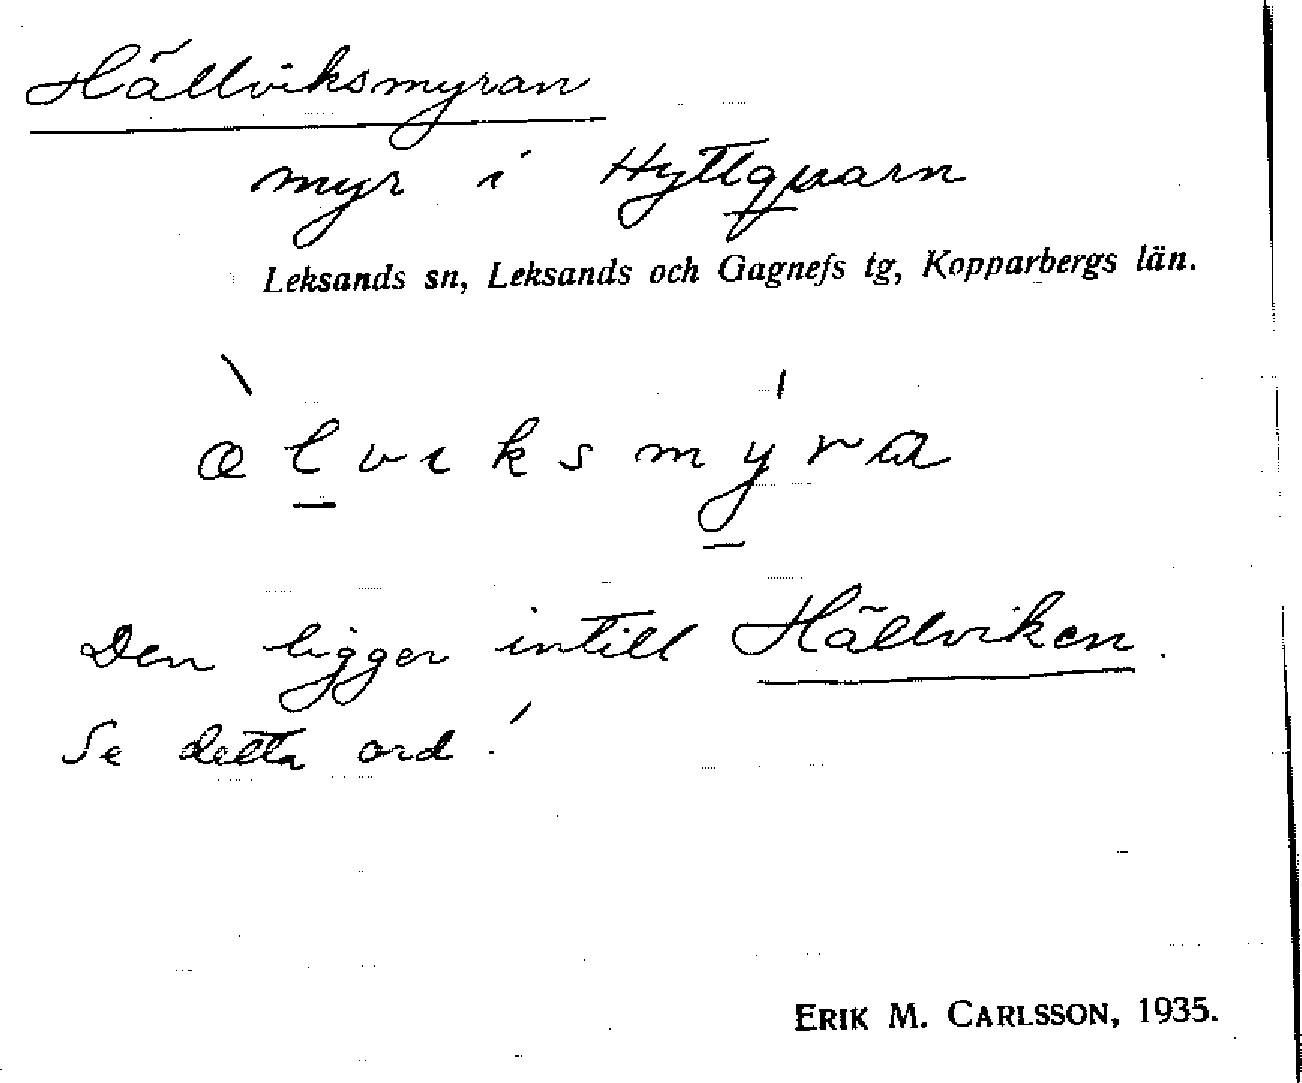 Hällviksmyran
myr i Hyttqvarn
Leksands sn, Leksands och Gagnefs tg, Kopparbergs län.
æ̀l̠viksmý̠ra
Den ligger intill Hällviken.
Se detta ord!
ERIK M. CARLSSON, 1935.